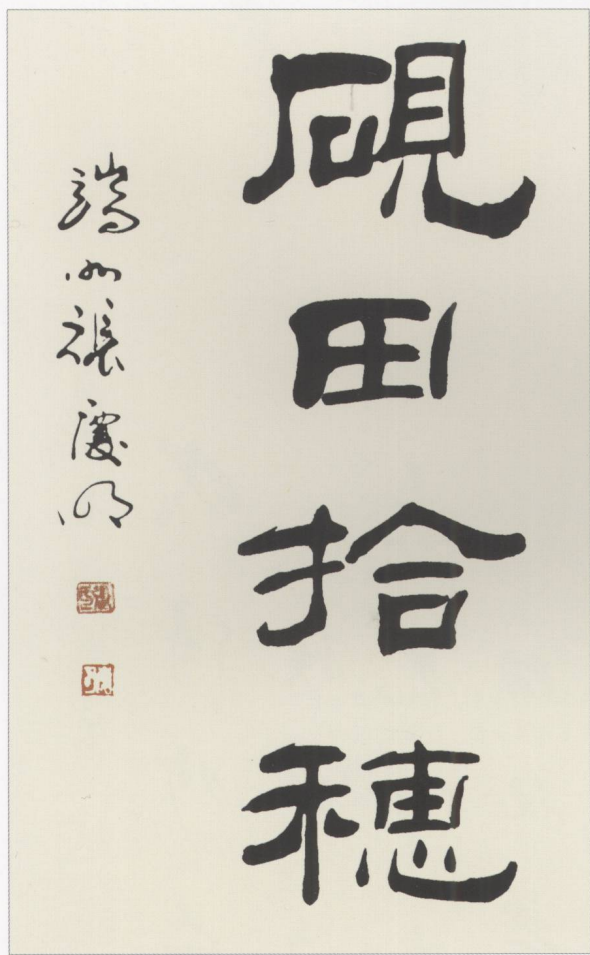 硯田拾穗
端州張慶明